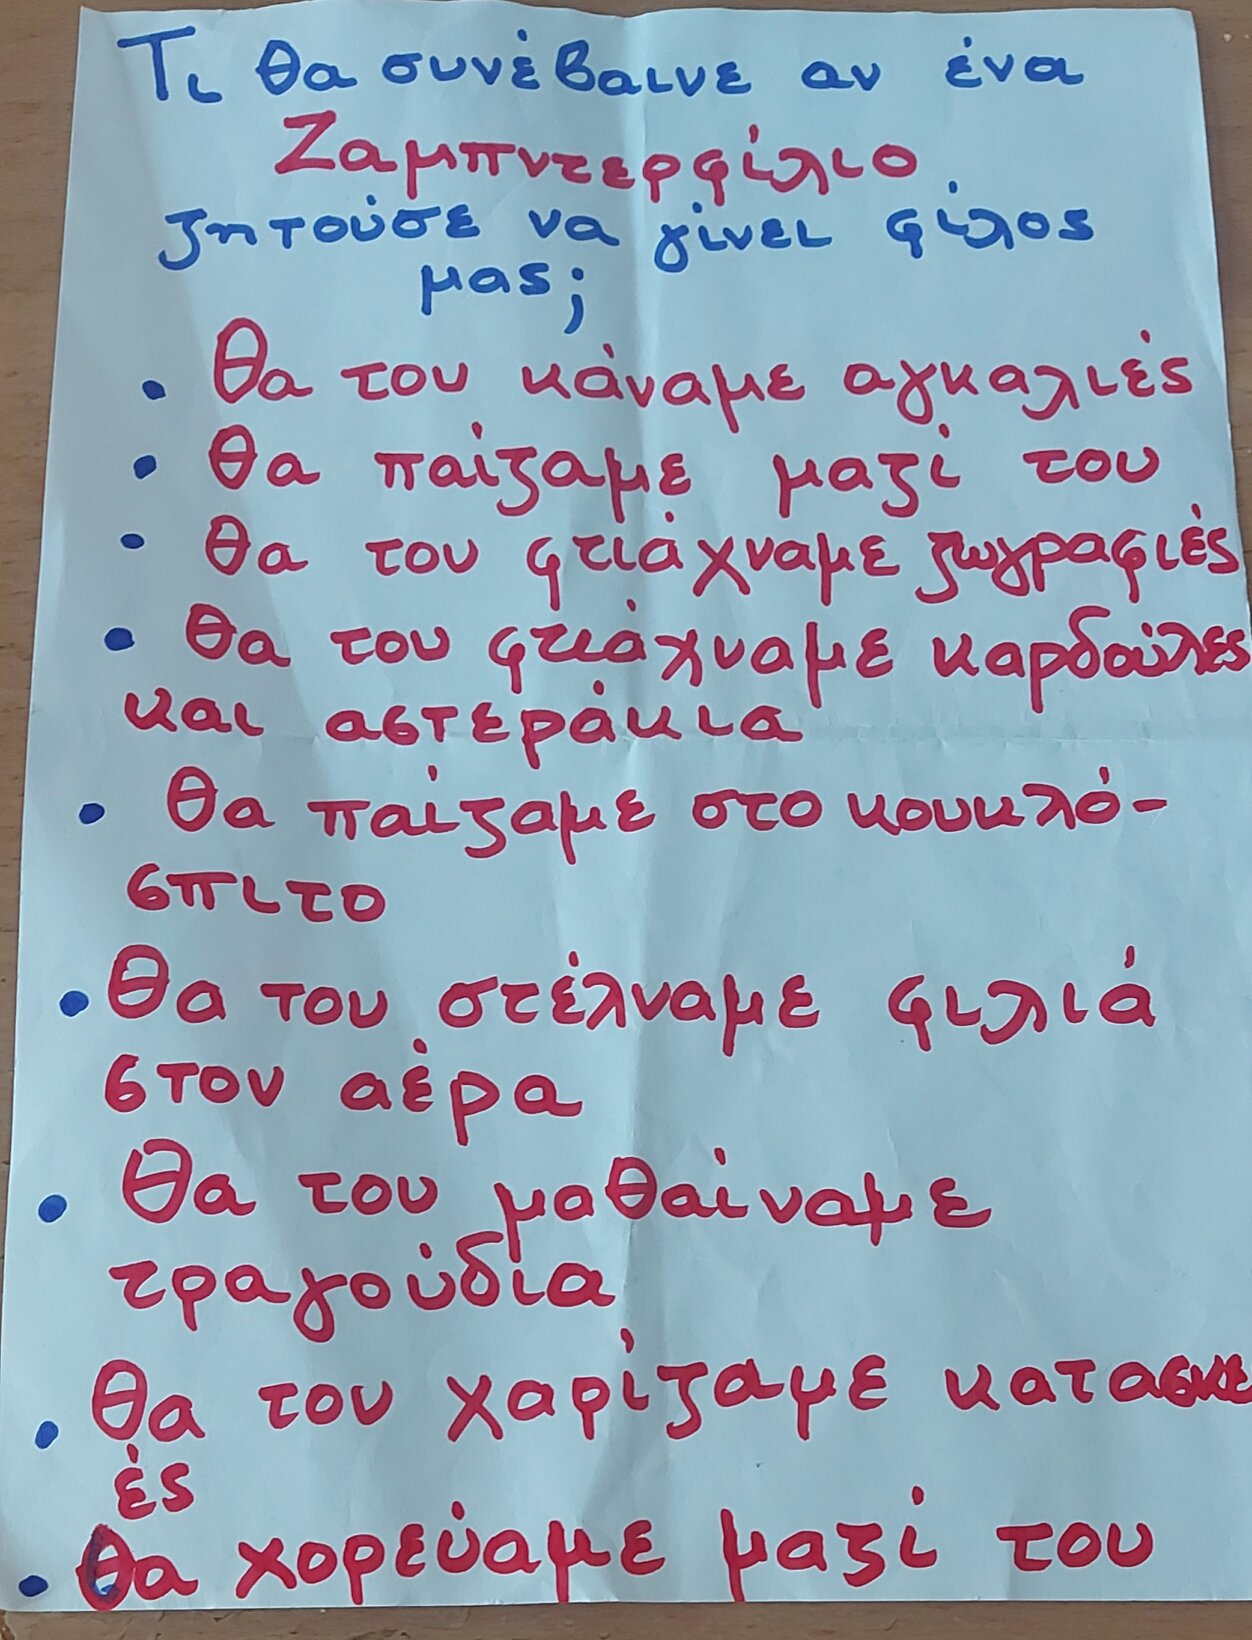 Τι θα συνέβαινε αν ένα
Ζαμπντερφίλιο
ζητούσε να γίνει φίλος
μας;
• Θα του κάναμε αγκαλιές
• Θα παίζαμε μαζί του
• Θα του φτιάχναμε ζωγραφιές
• Θα του φτιάχναμε καρδούλες
και αστεράκια
• Θα παίζαμε στο κουκλό-
σπιτο
• Θα του στέλναμε φιλιά
στον αέρα
• Θα του μαθαίναμε
τραγούδια
• Θα του χαρίζαμε κατασκε
ές
• Θα χορεύαμε μαζί του